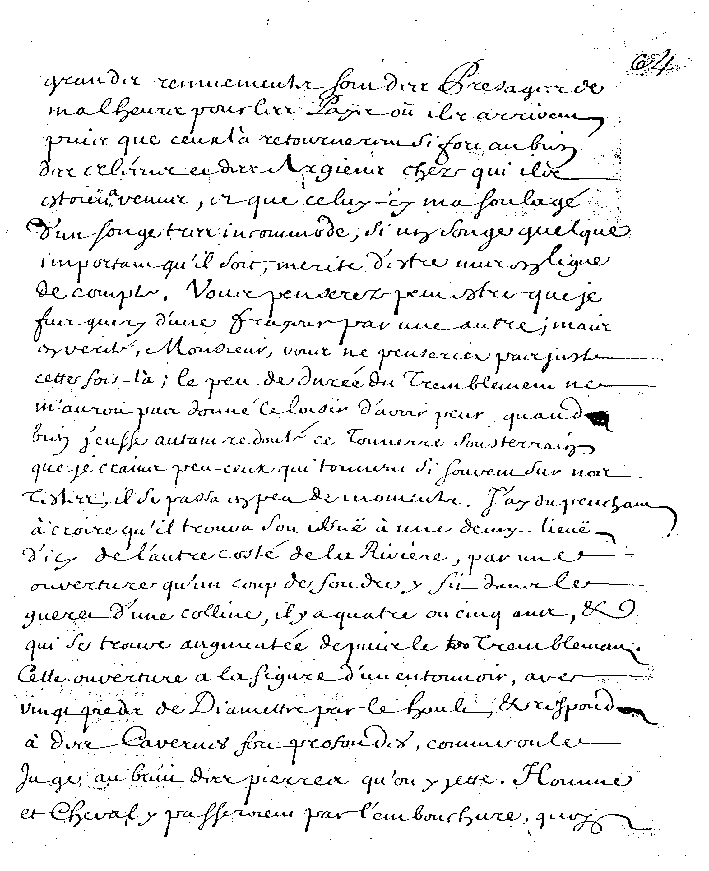 64
grandes remuements sont des Presages de
malheurs pour les Pays où ils arrivent
puis que ceux là retournerent si fort au bien
des celestes et des Argiens chez qui ils
estoient venus, et que celuy-cy m'a soulagé
d'un songe tres incommode, si un songe quelque
important qu'il soit, merite d'estre mis en ligne
de compte. Vous penserez peut estre que je
fus guery d'une frayeur par une autre; mais
en verité, Monsieur, vous ne penseriez pas juste
cette fois-là; le peu de durée du Tremblement ne
m'auroit pas donné le loisir d'avoir peur quand
bien j'eusse autant redouté ce Tonnerre sousterrain
que je crains peu ceux qui tonnent si souvent sur nos
Testes; il se passa en peu de moments. J'ay du penchant
à croire qu'il trouva son issuë à une demy-lieuë
d'icy de l'autre costé de la Riviere, par une
ouverture qu'un coup de foudre y fit dans le
gueret d'une colline, il y a quatre ou cinq ans, &
qui se trouve augmentée depuis le Tremblement.
Cette ouverture a la figure d'un entonnoir, avec
vingt pieds de Diamettre par le hault, & respond
à des Cavernes fort profondes, comme on le
Juge, au bruit des pierres qu'on y jette. Homme
et Cheval y passeroient par l'embouchure, quoy